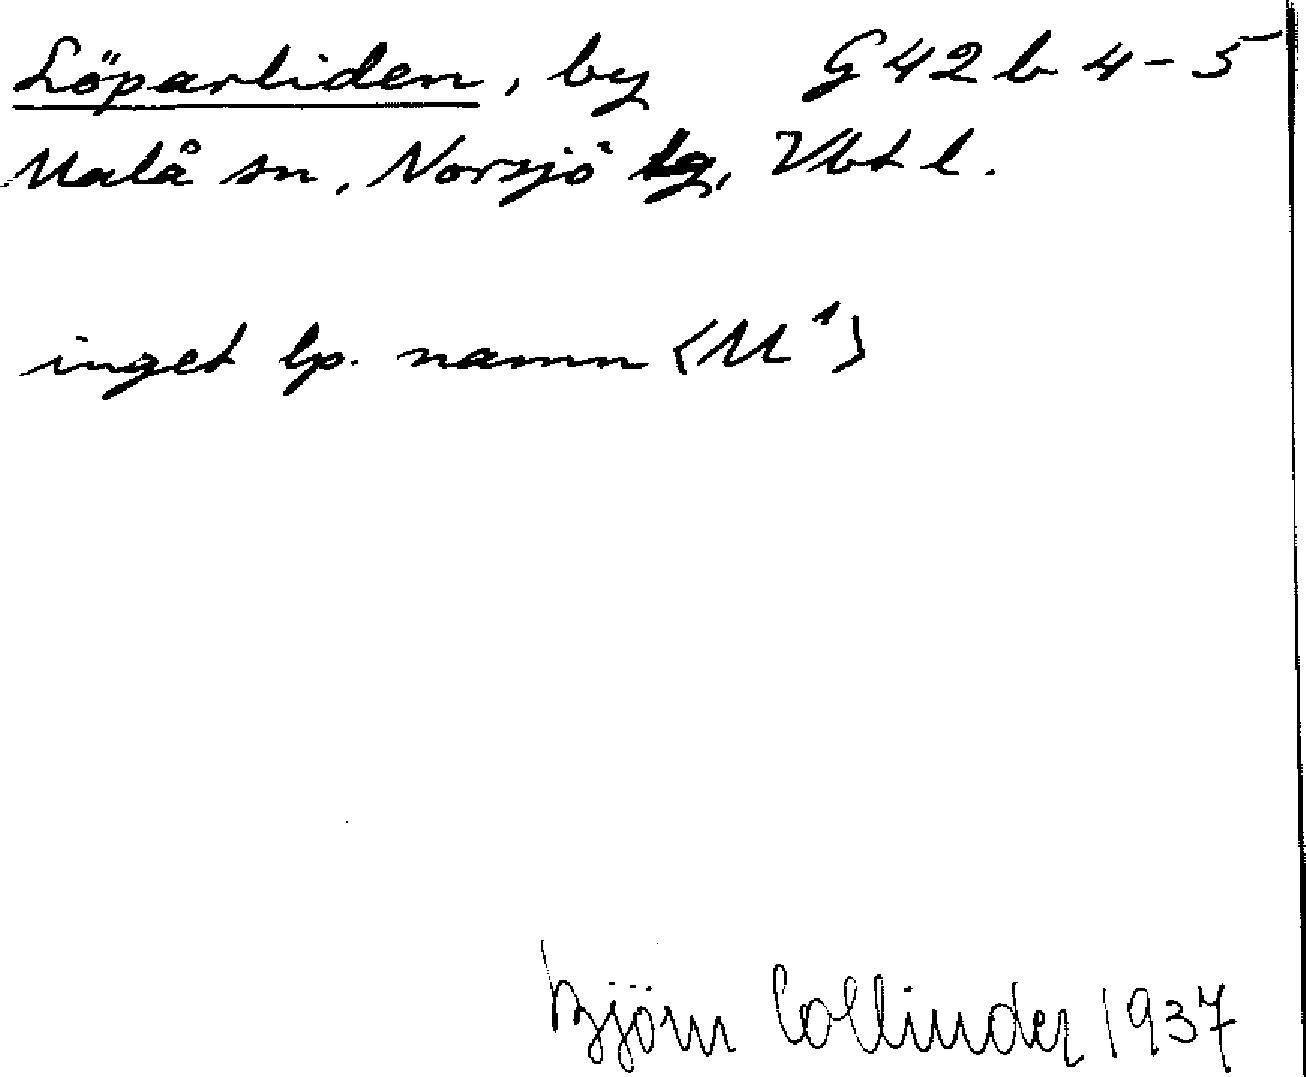 Löparliden, by G42b 4-5
Malå sn, Norsjö tg, Vbt l.
inget lp. namn <M¹>
Björn Collinder 1937